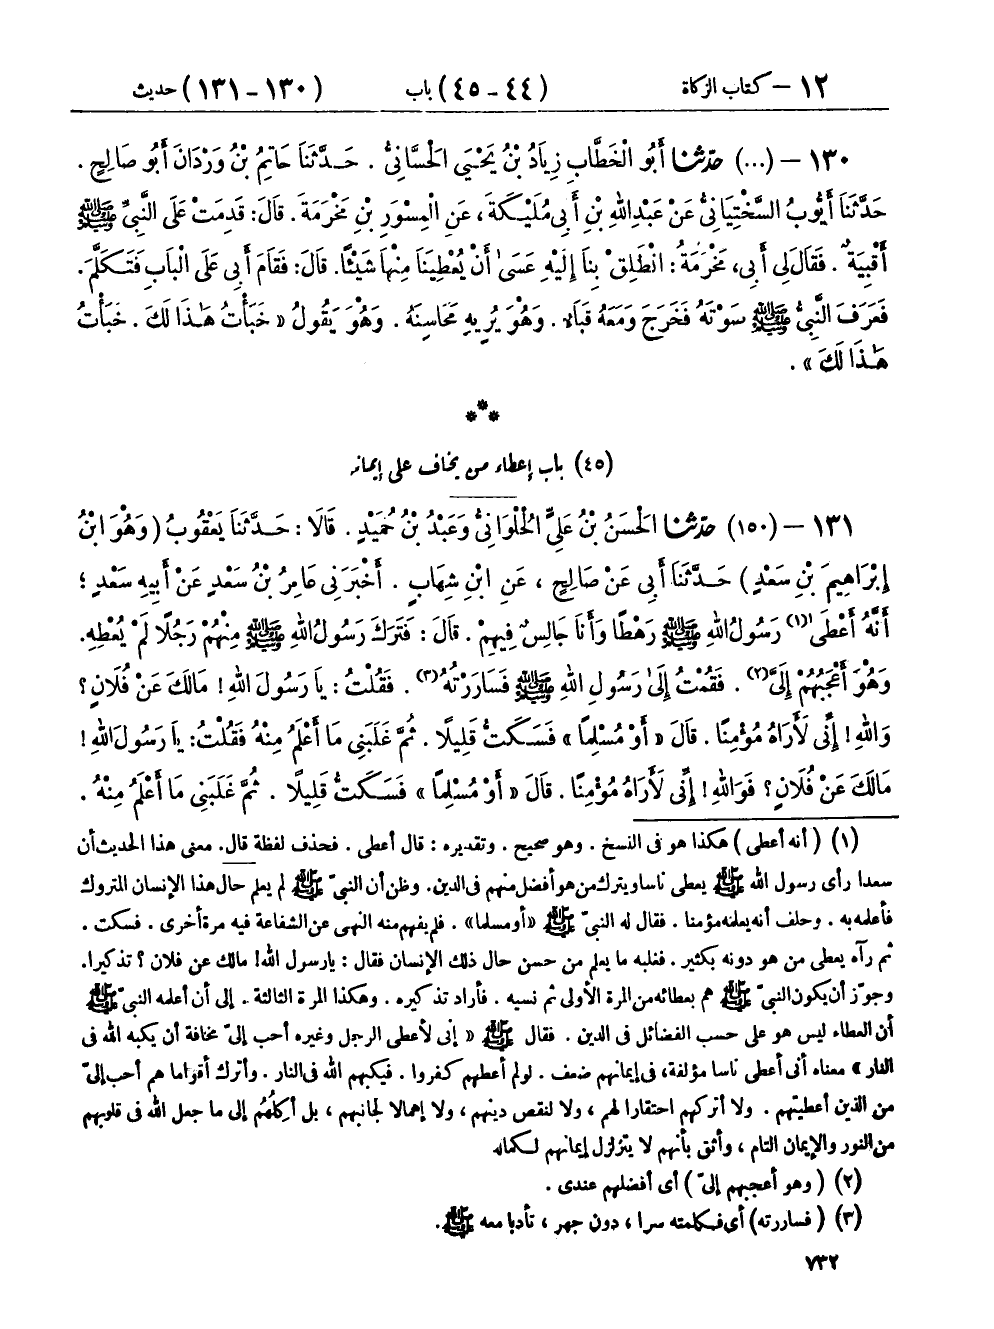 ١٢ – كتاب الزكاة (٤٤ – ٤٥) باب (١٣٠ – ١٣١) حديث
١٣٠ – (...) حدّثنا أَبُو الْخَطَّابِ زِيَادُ بْنُ يَحْيَى الْحَسَّانِيُّ . حَدَّثَنَا حَاتِمُ بْنُ وَرْدَانَ أَبُو صَالِحٍ .
حَدَّثَنَا أَيُّوبُ السَّخْتِيَانِيُّ عَنْ عَبْدِ اللهِ بْنِ أَبِي مُلَيْكَةَ ، عَنِ الْمِسْوَرِ بْنِ مَخْرَمَةَ . قَالَ: قَدِمَتْ عَلَى النَّبِيِّ ﷺ
أَقْبِيَةٌ . فَقَالَ لِي أَبِي، مَخْرَمَةُ : انْطَلِقْ بِنَا إِلَيْهِ عَسَىٰ أَنْ يُعْطِيَنَا مِنْهَا شَيْئًا. قَالَ: فَقَامَ أَبِي عَلَى الْبَابِ فَتَكَلَّمَ.
فَعَرَفَ النَّبِيُّ ﷺ صَوْتَهُ فَخَرَجَ وَمَعَهُ قَبَاءٌ . وَهُوَ يُرِيهِ مَحَاسِنَهُ . وَهُوَ يَقُولُ « خَبَأْتُ هَٰذَا لَكَ . خَبَأْتُ
هَٰذَا لَكَ » .
***
(٤٥) باب إعطاء من يخاف على إيمانه
١٣١ – (١٥٠) حدّثنا الْحَسَنُ بْنُ عَلِيٍّ الْحُلْوَانِيُّ وَعَبْدُ بْنُ حُمَيْدٍ . قَالَا : حَدَّثَنَا يَعْقُوبُ (وَهُوَ ابْنُ
إِبْرَاهِيمَ بْنِ سَعْدٍ) حَدَّثَنَا أَبِي عَنْ صَالِحٍ ، عَنِ ابْنِ شِهَابٍ . أَخْبَرَنِي عَامِرُ بْنُ سَعْدٍ عَنْ أَبِيهِ سَعْدٍ ؛
أَنَّهُ أَعْطَى(١) رَسُولُ اللهِ ﷺ رَهْطًا وَأَنَا جَالِسٌ فِيهِمْ . قَالَ : فَتَرَكَ رَسُولُ اللهِ ﷺ مِنْهُمْ رَجُلًا لَمْ يُعْطِهِ.
وَهُوَ أَعْجَبُهُمْ إِلَيَّ(٢) . فَقُمْتُ إِلَىٰ رَسُولِ اللهِ ﷺ فَسَارَرْتُهُ(٣) . فَقُلْتُ : يَا رَسُولَ اللهِ ! مَالَكَ عَنْ فُلَانٍ ؟
وَاللهِ ! إِنِّي لَأَرَاهُ مُؤْمِنًا . قَالَ « أَوْ مُسْلِمًا » فَسَكَتُّ قَلِيلًا . ثُمَّ غَلَبَنِي مَا أَعْلَمُ مِنْهُ فَقُلْتُ: يَا رَسُولَ اللهِ !
مَالَكَ عَنْ فُلَانٍ ؟ فَوَاللهِ ! إِنِّي لَأَرَاهُ مُؤْمِنًا . قَالَ « أَوْ مُسْلِمًا » فَسَكَتُّ قَلِيلًا . ثُمَّ غَلَبَنِي مَا أَعْلَمُ مِنْهُ .
(١) ( أنه أعطى ) هكذا هو فى النسخ . وهو صحيح . وتقديره : قال أعطى . فحذف لفظة قال. معنى هذا الحديث أن
سعدا رأى رسول الله ﷺ يعطى ناسا ويترك من هو أفضل منهم فى الدين. وظن أن النبيّ ﷺ لم يعلم حال هذا الإنسان المتروك
فأعلمه به . وحلف أنه يعلمه مؤمنا . فقال له النبيّ ﷺ «أو مسلما» . فلم يفهم منه النهى عن الشفاعة فيه مرة أخرى . فسكت .
ثم رآه يعطى من هو دونه بكثير . فغلبه ما يعلم من حسن حال ذلك الإنسان فقال : يارسول الله! مالك عن فلان ؟ تذكيرا.
وجوّز أن يكون النبيّ ﷺ هم بعطائه من المرة الأولى ثم نسيه . فأراد تذكيره . وهكذا المرة الثالثة . إلى أن أعلمه النبيّ ﷺ
أن العطاء ليس هو على حسب الفضائل فى الدين . فقال ﷺ « إنى لأعطى الرجل وغيره أحب إلىّ مخافة أن يكبه الله فى
النار » معناه أنى أعطى ناسا مؤلفة، فى إيمانهم ضعف . لو لم أعطهم كفروا . فيكبهم الله فى النار . وأترك أقواما هم أحب إلىّ
من الذين أعطيتهم . ولا أتركهم احتقارا لهم ، ولا لنقص دينهم ، ولا إهمالا لجانبهم ، بل أكِلُهُم إلى ما جعل الله فى قلوبهم
من النور والإيمان التام ، وأثق بأنهم لا يتزلزل إيمانهم لكماله
(٢) ( وهو أعجبهم إلىّ ) أى أفضلهم عندى .
(٣) ( فساررته) أى فكلمته سرا ، دون جهر ، تأدبا معه ﷺ .
٧٣٢